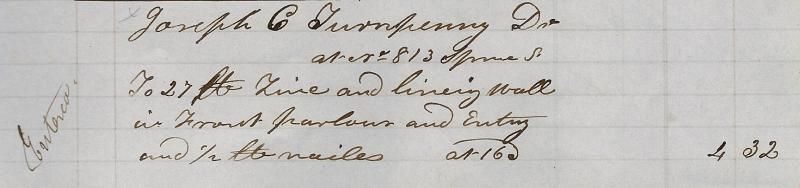 Joseph C Turnpenny Dr
at No 813 Spruce St
To 27 ft Zinc and lineing Wall
in Front parlour and Entry
and 1/2 lb nailes at 16c 4 32
Entered.